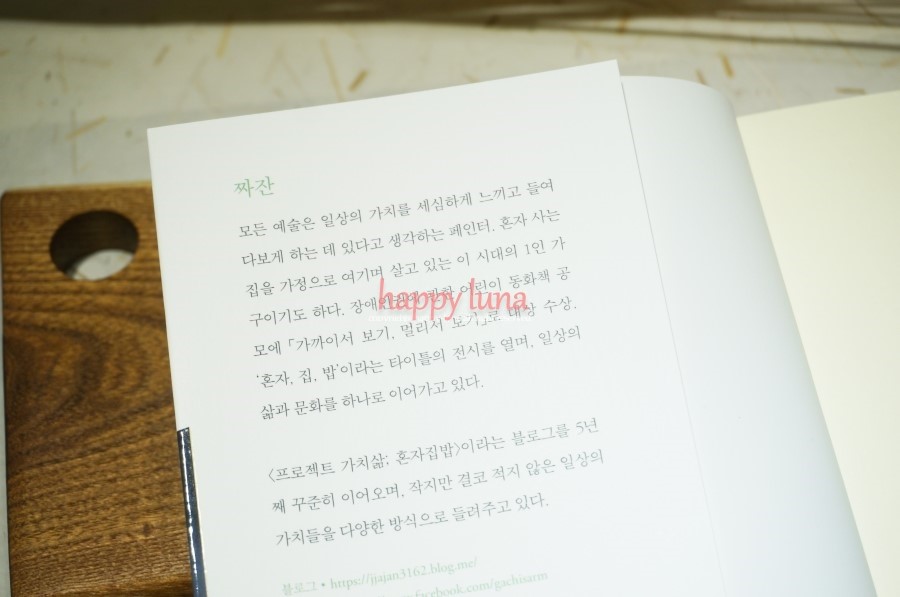 짜잔
모든 예술은 일상의 가치를 세심하게 느끼고 들여
다보게 하는 데 있다고 생각하는 페인터. 혼자 사는
집을 가정으로 여기며 살고 있는 이 시대의 1인 가
구이기도 하다. 장애인권에 관한 어린이 동화책 공
모에 「가까이서 보기, 멀리서 보기」로 대상 수상.
‘혼자, 집, 밥’이라는 타이틀의 전시를 열며, 일상의
삶과 문화를 하나로 이어가고 있다.
〈프로젝트 가치삶; 혼자집밥〉이라는 블로그를 5년
째 꾸준히 이어오며, 작지만 결코 적지 않은 일상의
가치들을 다양한 방식으로 들려주고 있다.
블로그 • https://jjajan3162.blog.me/
facebook.com/gachisarm
happy luna